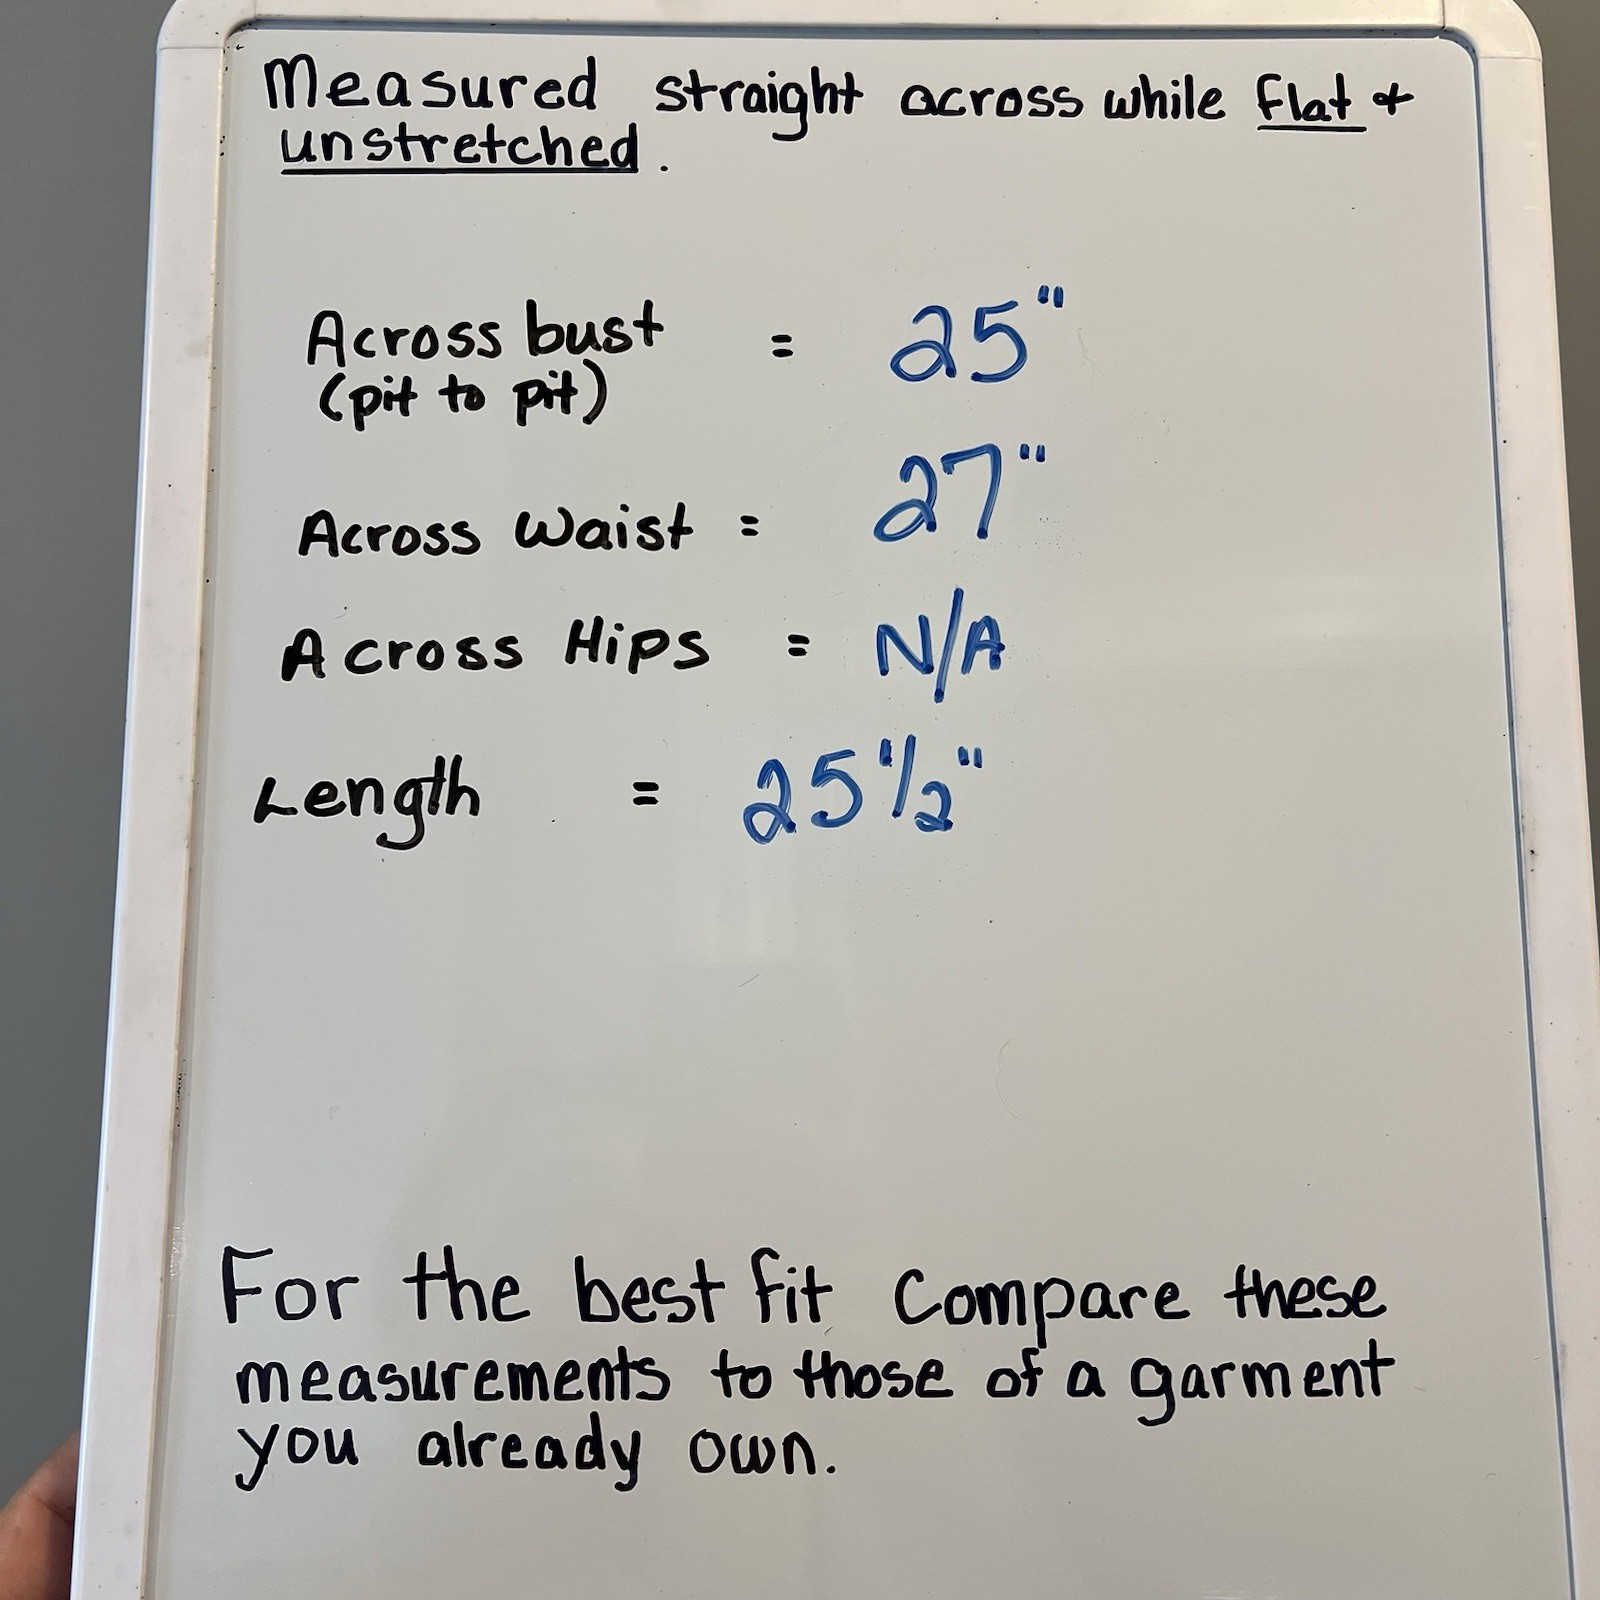 Measured straight across while flat &
unstretched.
Across bust = 25"
(pit to pit)
Across waist = 27"
Across Hips = N/A
Length = 25 1/2"
For the best fit Compare these
measurements to those of a garment
you already own.